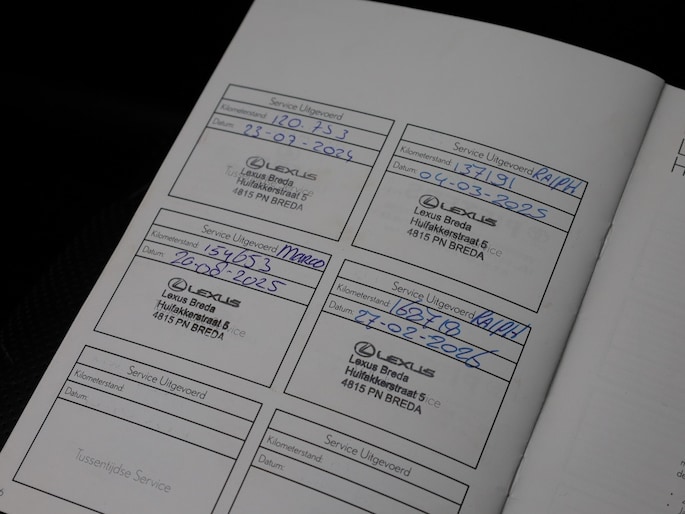 Service Uitgevoerd
Kilometerstand: 120.753
Datum: 23-07-2024
LEXUS
Lexus Breda
Huifakkerstraat 5
4815 PN BREDA
Service Uitgevoerd RALPH
Kilometerstand: 137191
Datum: 04-03-2025
LEXUS
Lexus Breda
Huifakkerstraat 5
4815 PN BREDA
Service Uitgevoerd MARCO
Kilometerstand: 154653
Datum: 26-08-2025
LEXUS
Lexus Breda
Huifakkerstraat 5
4815 PN BREDA
Service Uitgevoerd RALPH
Kilometerstand: 162719
Datum: 27-02-2026
LEXUS
Lexus Breda
Huifakkerstraat 5
4815 PN BREDA
Service Uitgevoerd
Kilometerstand:
Datum:
Tussentijdse Service
Service Uitgevoerd
Kilometerstand:
Datum: